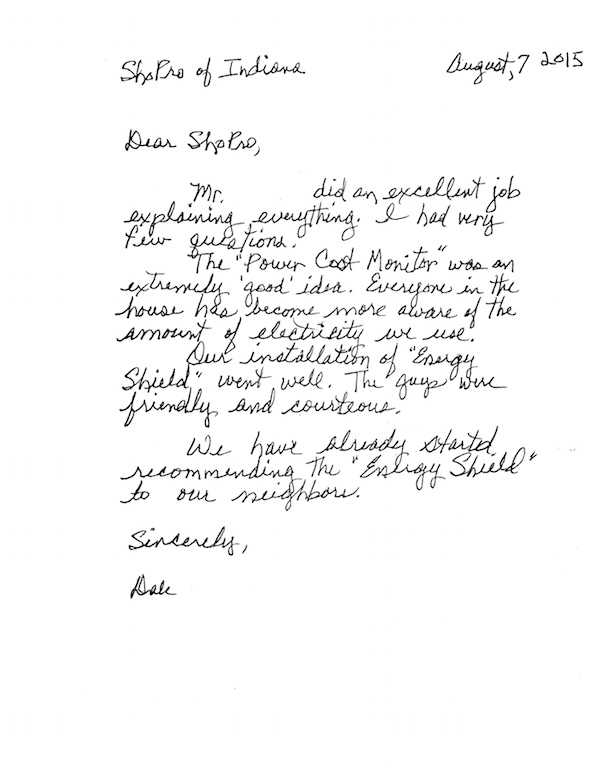 ShoPro of Indiana August, 7 2015
Dear ShoPro,
Mr. did an excellent job
explaining everything. I had very
few questions.
The "Power Cost Monitor" was an
extremely 'good' idea. Everyone in the
house has become more aware of the
amount of electricity we use.
Our installation of "Energy
Shield" went well. The guys were
friendly and courteous.
We have already started
recommending the "Energy Shield"
to our neighbors.
Sincerely,
Dale